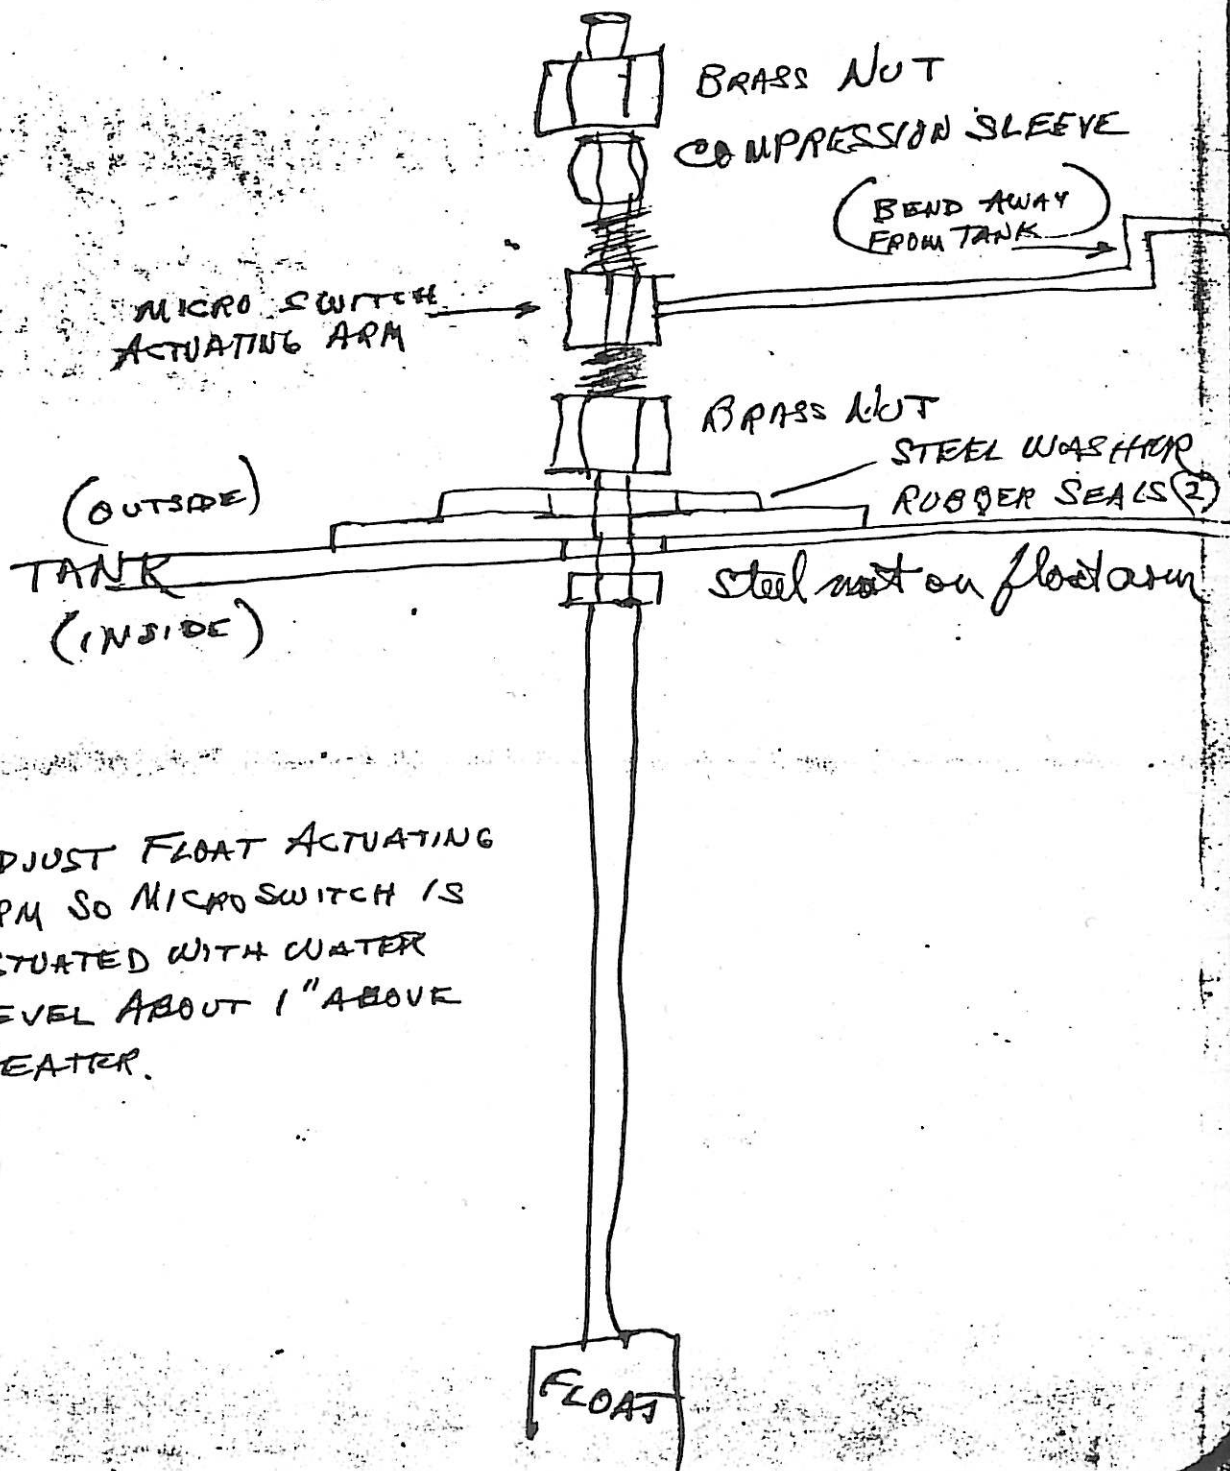 BRASS NUT
COMPRESSION SLEEVE
(BEND AWAY
FROM TANK)
MICRO SWITCH
ACTUATING ARM
BRASS NUT
STEEL WASHER
RUBBER SEALS (2)
(OUTSIDE)
TANK
(INSIDE)
Steel nut on float arm
DJUST FLOAT ACTUATING
RM SO MICRO SWITCH IS
CTUATED WITH WATER
EVEL ABOUT 1" ABOVE
EATER.
FLOAT